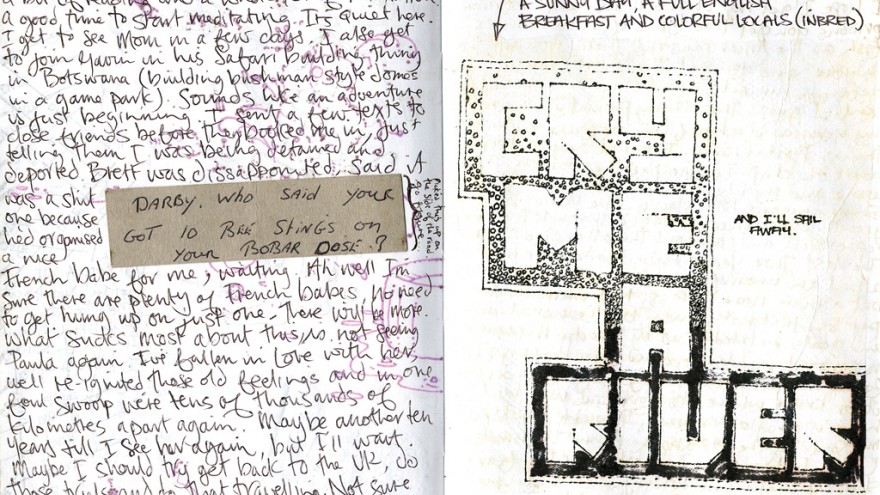 a good time to start meditating. It's quiet here.
I get to see Mom in a few days. I also get
to join Yaovi in his Safari building thing
in Botswana (building bushman style domes
in a game park). Sounds like an adventure
is just beginning. I sent a few texts to
close friends before they booked me in, just
telling them I was being detained and
deported. Brett was dissappointed, said it
was a shit
one because
he'd organised
a nice
DARBY. WHO SAID YOUR
GOT 10 BEE STINGS ON
YOUR BOBAR DOSE?
French babe for me, waiting. Ah well I'm
sure there are plenty of French babes, no need
to get hung up on just one. There will be more.
What sucks most about this, is not seeing
Paula again. I've fallen in love with her,
well re-ignited those old feelings and in one
foul swoop we're tens of thousands of
kilometres apart again. Maybe another ten
years till I see her again, but I'll wait.
Maybe I should try get back to the UK, do
and travelling. Not sure
A SUNNY DAY, A FULL ENGLISH
BREAKFAST AND COLORFUL LOCALS (INBRED)
CRY
ME
A
RIVER
AND I'LL SAIL
AWAY.